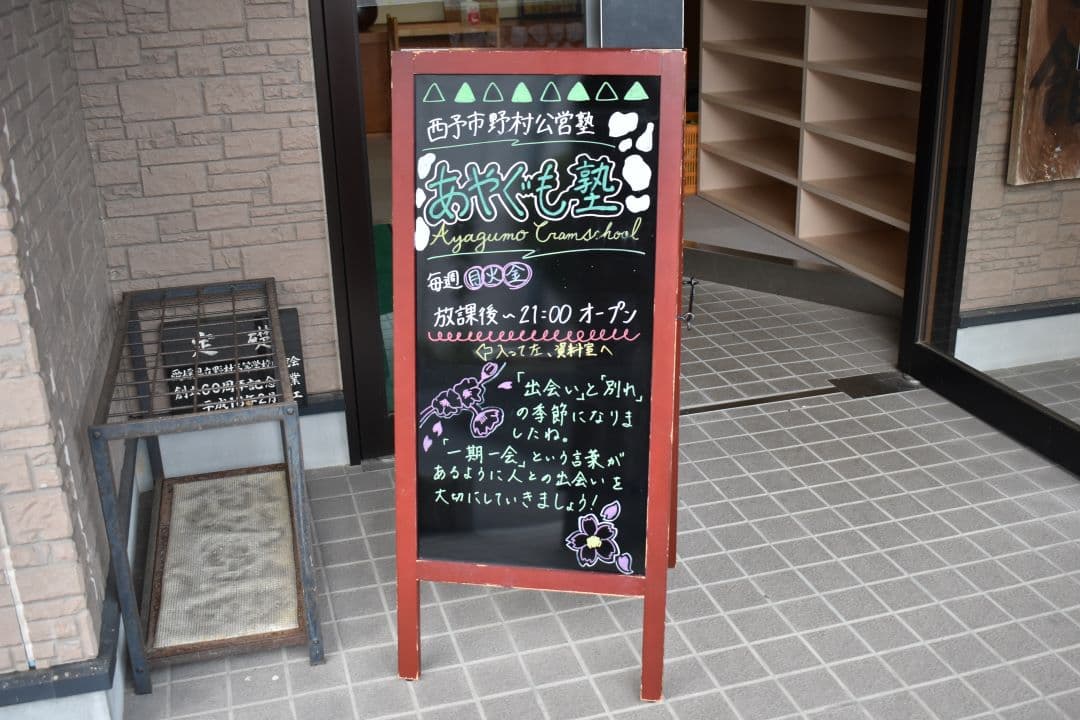 西予市野村公営塾
あやぐも塾
Ayagumo Cramschool
毎週 月 火 金
放課後〜21:00 オープン
入って左、資料室へ
「出会い」と「別れ」
の季節になりま
したね。
「一期一会」という言葉が
あるように人との出会いを
大切にしていきましょう!
定礎
創立60周年記念